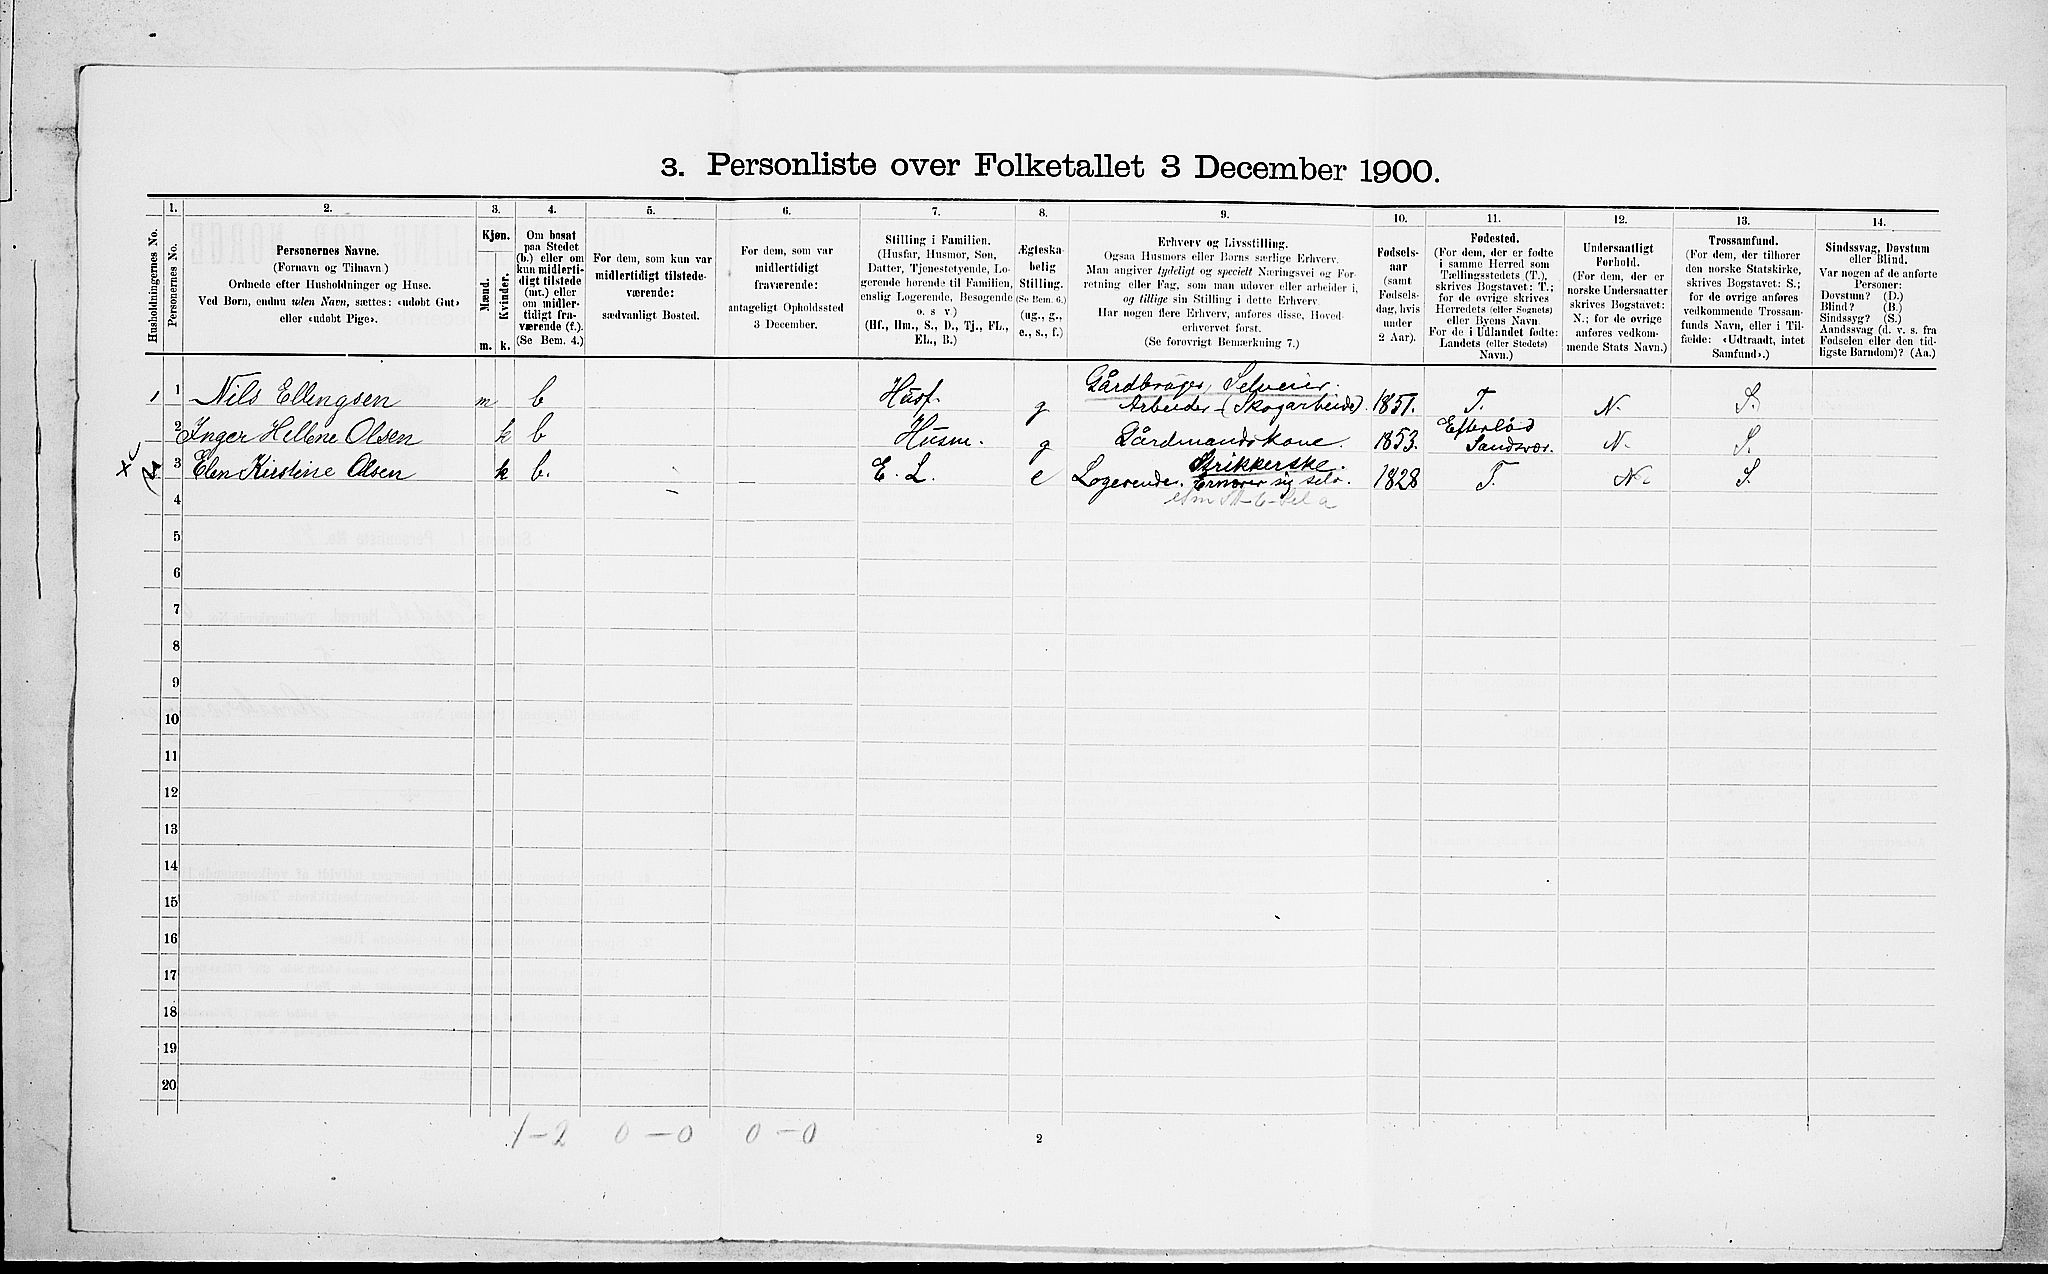 3. Personliste over Folketallet 3 December 1900.
1. 2. 3. 4. 5. 6. 7. 8. 9. 10. 11. 12. 13. 14.
Husholdningernes No.
Personernes No.
Personernes Navne.
(Fornavn og Tilnavn.)
Ordnede efter Husholdninger og Huse.
Ved Børn, endnu uden Navn, sættes: «udøbt Gut»
eller «udøbt Pige».
Kjøn.
Mænd.
Kvinder.
m. k.
Om bosat
paa Stedet
(b.) eller om
kun midlerti-
digt tilstede
(mt.) eller
om midler-
tidigt fra-
værende (f.).
(Se Bem. 4.)
For dem, som kun var
midlertidigt tilstede-
værende:
sædvanligt Bosted.
For dem, som var
midlertidigt
fraværende:
antageligt Opholdssted
3 December.
Stilling i Familien.
(Husfar, Husmor, Søn,
Datter, Tjenestetyende, Lo-
gerende hørende til Familien,
enslig Logerende, Besøgende
o. s. v.)
(Hf., Hm., S., D., Tj., FL.,
EL., B.)
Ægteska-
belig
Stilling.
(Se Bem. 6.)
(ug., g.,
e., s., f.)
Erhverv og Livsstilling.
Ogsaa Husmors eller Børns særlige Erhverv.
Man angiver tydeligt og specielt Næringsvei og For-
retning eller Fag, som man udøver eller arbeider i,
og tillige sin Stilling i dette Erhverv.
Har nogen flere Erhverv, anføres disse, Hoved-
erhvervet først.
(Se forøvrigt Bemærkning 7.)
Fødsels-
aar
(samt
Fødsels-
dag, hvis
under
2 Aar).
Fødested.
(For dem, der er fødte
i samme Herred som
Tællingsstedets (T.),
skrives Bogstavet: T.;
for de øvrige skrives
Herredets (eller Sognets)
eller Byens Navn.
For de i Udlandet fødte:
Landets (eller Stedets)
Navn.)
Undersaatligt
Forhold.
(For dem, der er
norske Undersaatter
skrives Bogstavet:
N.; for de øvrige
anføres vedkom-
mende Stats Navn.)
Trossamfund.
(For dem, der tilhører
den norske Statskirke,
skrives Bogstavet: S.;
for de øvrige anføres
vedkommende Trossam-
funds Navn, eller i Til-
fælde: «Udtraadt, intet
Samfund».)
Sindssvag, Døvstum
eller Blind.
Var nogen af de anførte
Personer:
Døvstum? (D.)
Blind? (B.)
Sindssyg? (S.)
Aandssvag (d. v. s. fra
Fødselen eller den tid-
ligste Barndom)? (Aa.)
Gårdbruger, Selveier.
1 1 Nils Ellingsen m b Husf. g Arbeider - (Skogarbeide). 1851. T. N. S.
Efterlød
2 Inger Hellene Olsen k b Husm. g Gårdmandskone. 1853. Sandsvær. N. S.
Strikkerske.
3 Elen Kirstine Olsen k b. E. L. e Logerende. Ernærer sig selv. 1828 T. N. S.
4
5
6
7
8
9
10
11
12
13
14
15
16
17
18
19
20
1-2 0-0 0-0
2